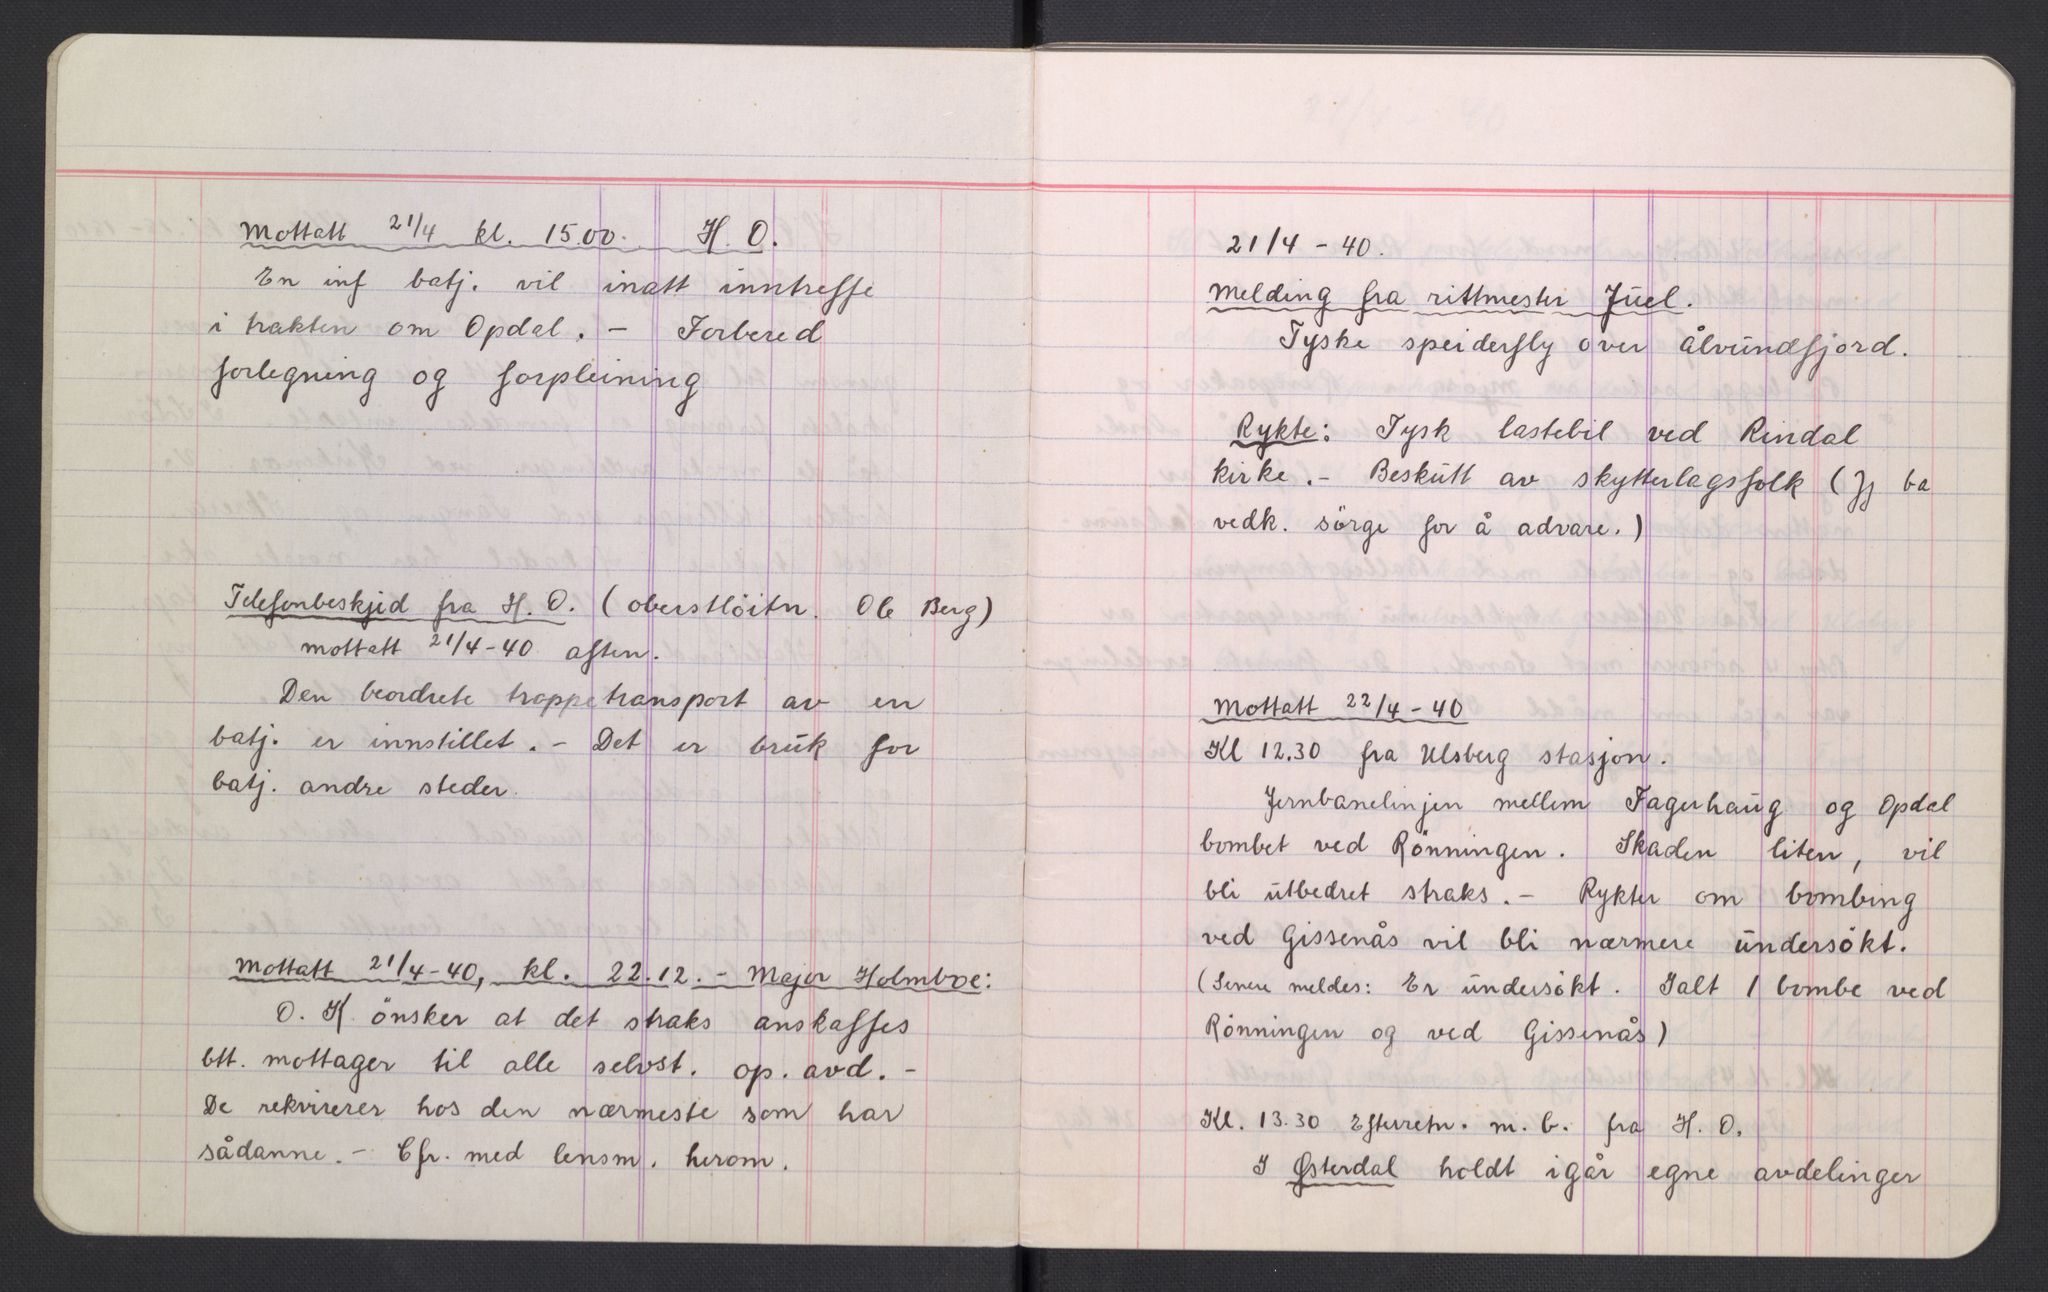 Mottatt 21/4 kl. 15.00. H. O.
En inf batj. vil inatt inntreffe
i trakten om Opdal. – Forbered
forlegning og forpleining
Telefonbeskjed fra H. O. (oberstlöitn. Ole Berg)
mottatt 21/4-40 aften.
Den beordrete troppetransport av en
batj. er innstillet. – Det er bruk for
batj. andre steder.
Mottatt 21/4-40, kl. 22.12. – Major Holmboe:
O. K. önsker at det straks anskaffes
btt. mottager til alle selvst. op. avd. –
De rekvirerer hos den nærmeste som har
sådanne. – Cfr. med lensm. herom.
21/4 – 40.
Melding fra rittmester Juel.
Tyske speiderfly over Ålvundfjord.
Rykte: Tysk lastebil ved Rindal
kirke. – Beskutt av skytterlagsfolk ( ba
vedk. sörge for å advare.)
Mottatt 22/4-40
Kl 12.30 fra Ulsberg stasjon.
Jernbanelinjen mellem Fagerhaug og Opdal
bombet ved Rönningen. Skaden liten, vil
bli utbedret straks. – Rykter om bombing
ved Gissenås vil bli nærmere undersökt.
(Senere meldes: Er undersökt. Ialt 1 bombe ved
Rönningen og ved Gissenås)
Kl. 13.30 Efterretn. m. b. fra H. O.
I Østerdal holdt igår egne avdelinger